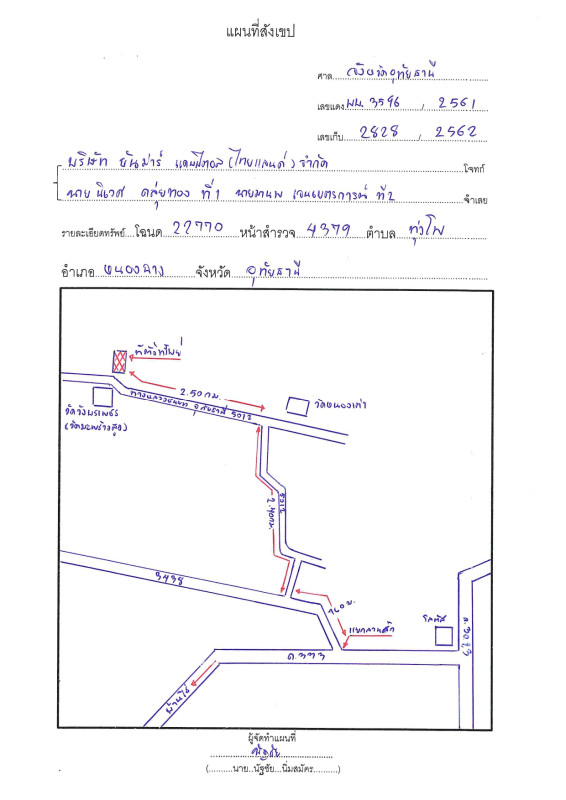 แผนที่สังเขป
ศาล จังหวัดอุทัยธานี
เลขแดง ผบ. 3596 , 2561
เลขเก็บ 2828 , 2562
บริษัท ยันม่าร์ แคปปิตอล (ไทยแลนด์) จำกัด โจทก์
นาย นิเวศ ที่ 1 นายมานพ ที่ 2 จำเลย
รายละเอียดทรัพย์ โฉนด 22770 หน้าสำรวจ 4379 ตำบล ทุ่งโพ
อำเภอ หนองฉาง จังหวัด อุทัยธานี
ที่ตั้งทรัพย์
2.50 กม.
ทางหลวงชนบท อุทัยธานี 5012
วัดหนองเต่า
วัดวังเพชร
(วัดมะพร้าวสูง)
5012
2.40 กม.
3438
760 ม.
แยก
โลตัส
ถ.333
บ้านไร่
ผู้จัดทำแผนที่
ณัฐชัย
(.........นาย..นัฐชัย...นิ่มสมัคร..........)